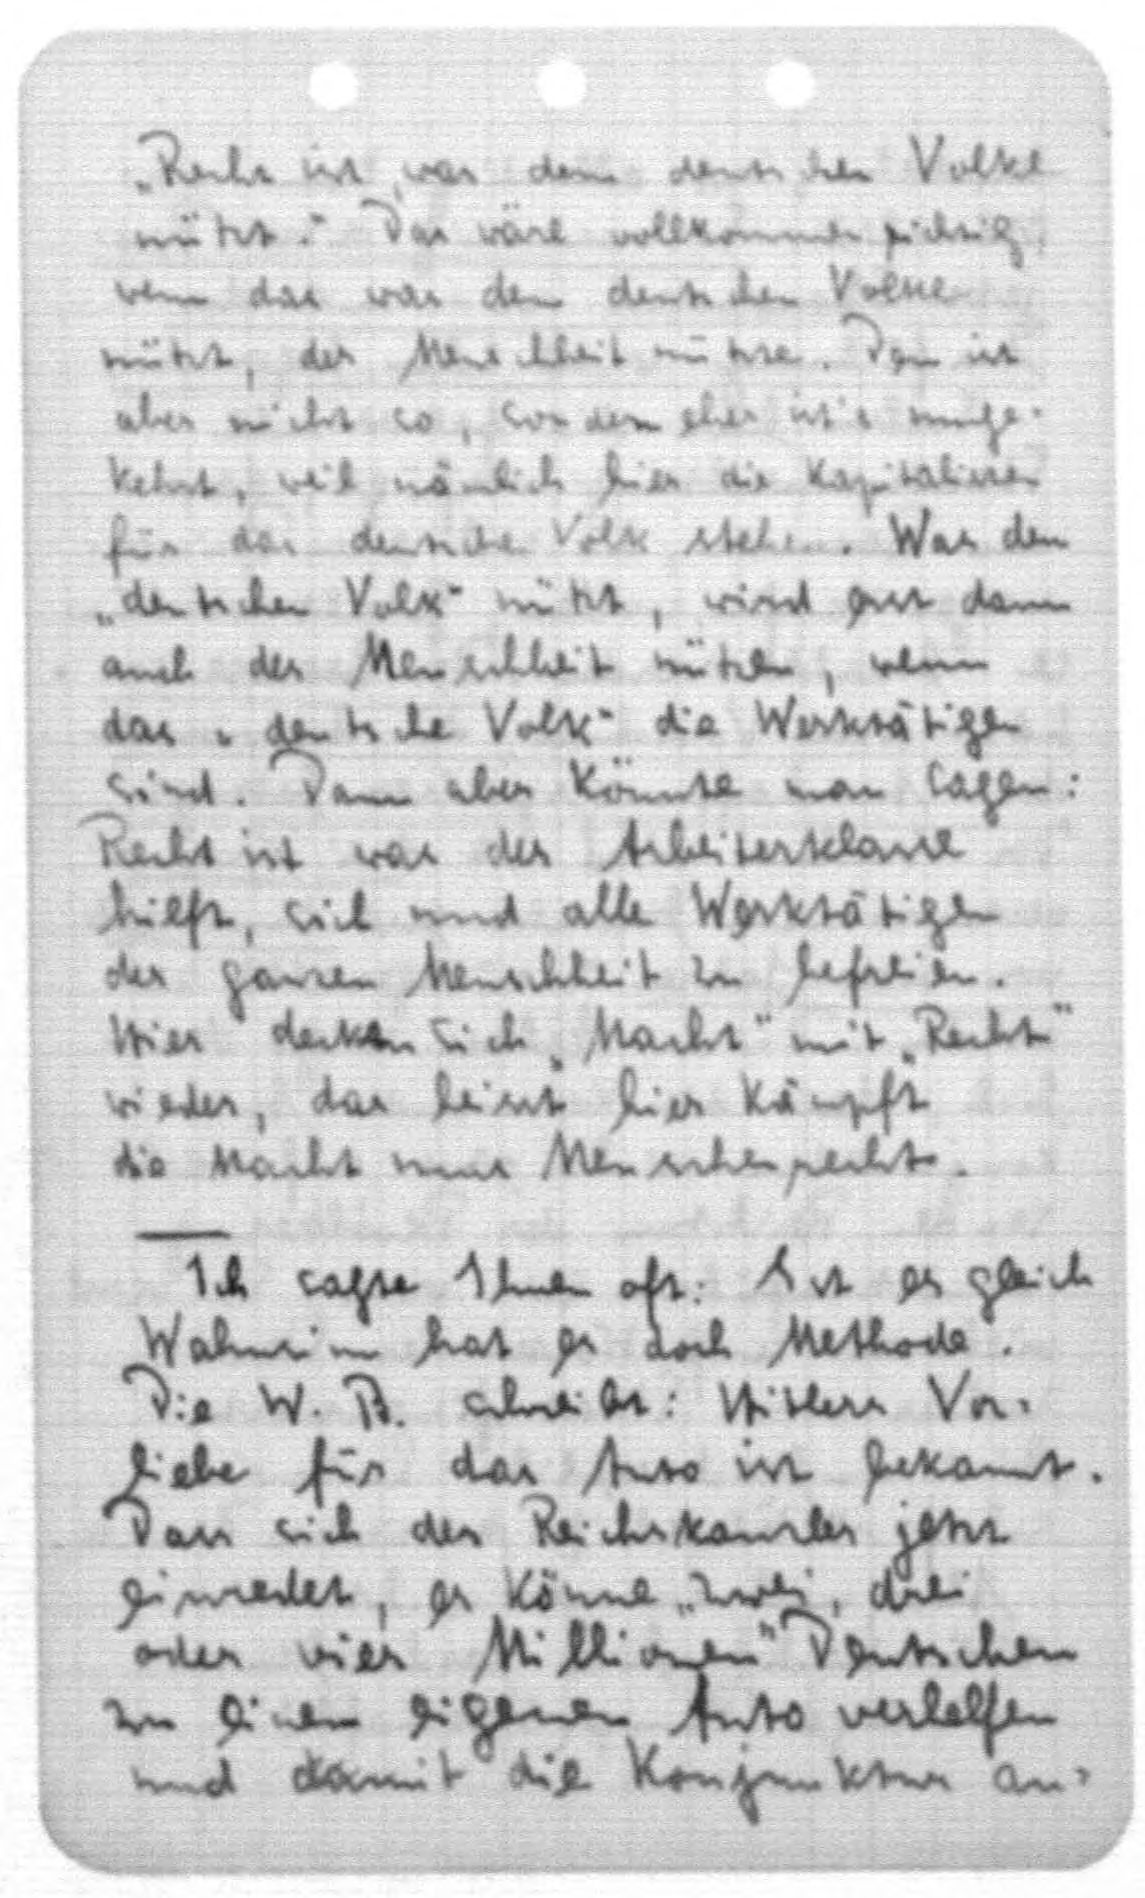 „Recht ist, was dem deutschen Volke
nützt." Das wäre vollkommen richtig,
wenn das was dem deutschen Volke
nützt, der Menschheit nützte. Dem ist
aber nicht so, sondern eher ist's umge-
kehrt, weil nämlich hier die Kapitalisten
für das deutsche Volk stehen. Was dem
„deutschen Volk" nützt, wird erst dann
auch der Menschheit nützen, wenn
das „deutsche Volk" die Werktätigen
sind. Dann aber könnte man sagen:
Recht ist was der Arbeiterklasse
hilft, sich und alle Werktätigen
der ganzen Menschheit zu befreien.
Hier decken sich „Macht" mit „Recht"
wieder, das heisst hier kämpft
die Macht ums Menschenrecht.
Ich sagte Ihnen oft: Ist es gleich
Wahnsinn hat es doch Methode.
Die W. B. schreibt: Hitlers Vor-
liebe für das Auto ist bekannt.
Dass sich der Reichskanzler jetzt
einredet, er könne „zwei, drei
oder vier Millionen" Deutschen
zu einem eigenen Auto verhelfen
und damit die Konjunktur an-